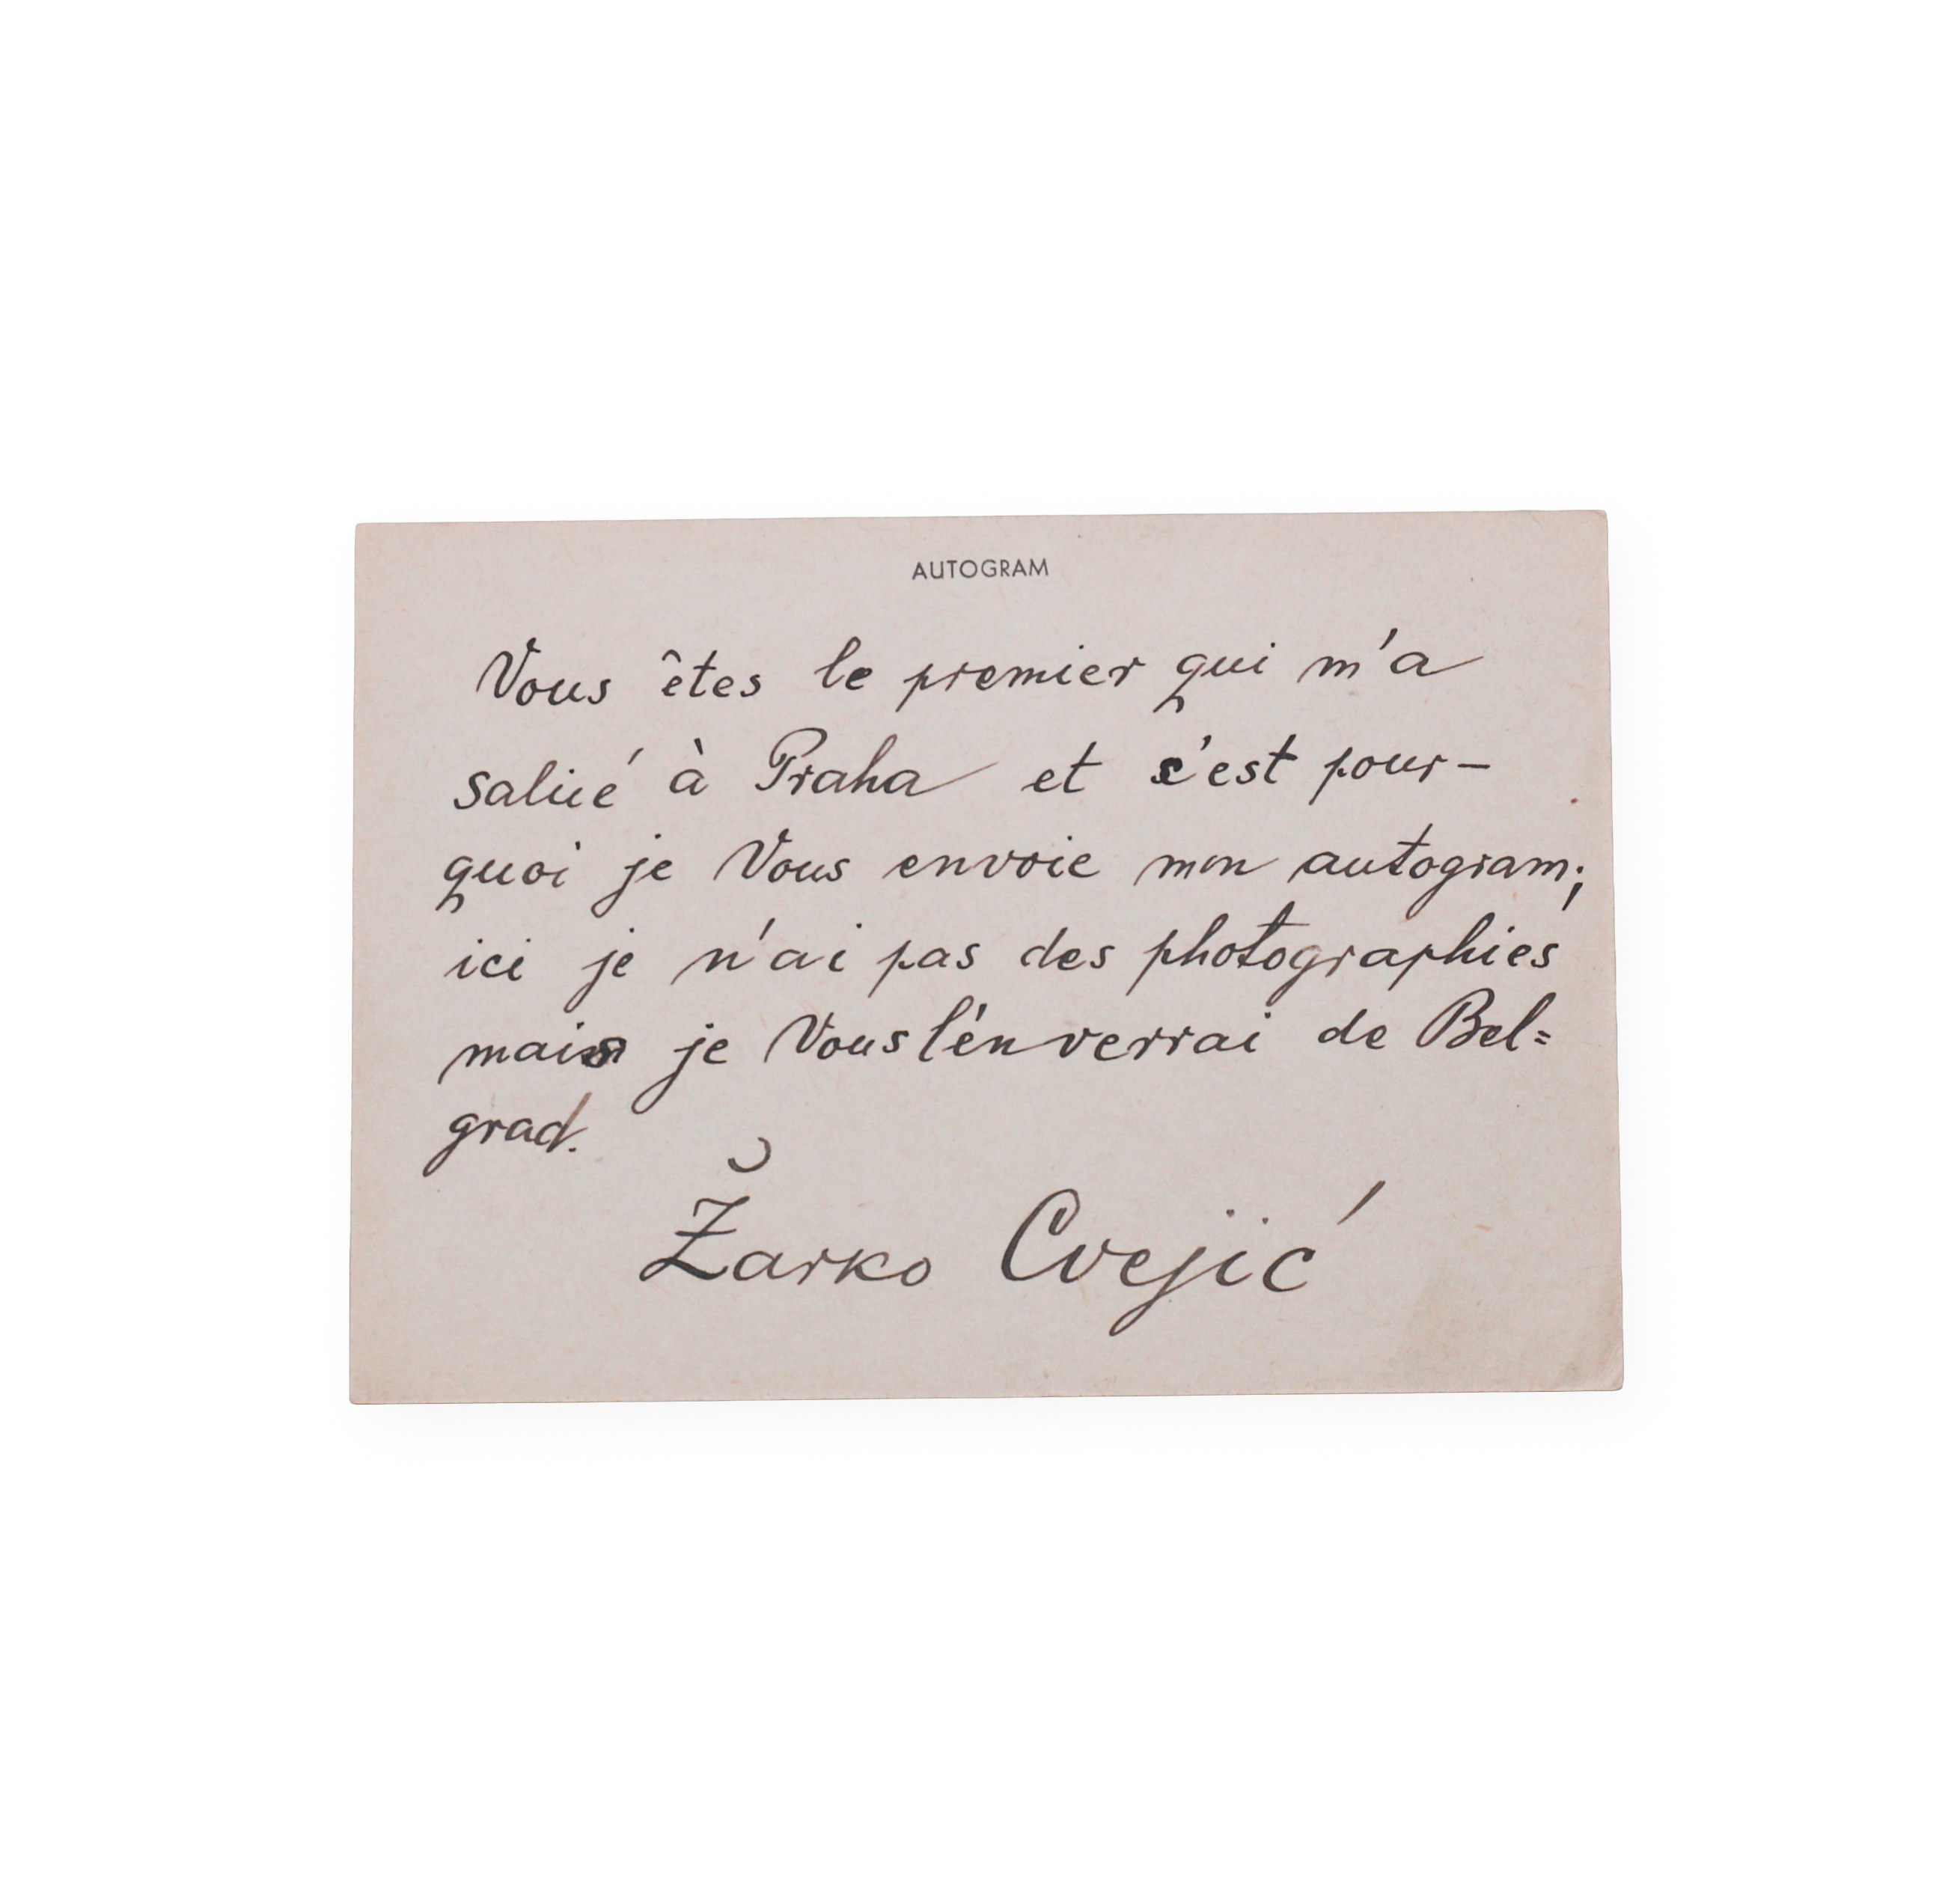 AUTOGRAM
Vous êtes le premier qui m'a
salué à Praha et c'est pour-
quoi je Vous envoie mon autogram;
ici je n'ai pas des photographies
mais je Vous l'énverrai de Bel=
grad.
Žarko Cvejić